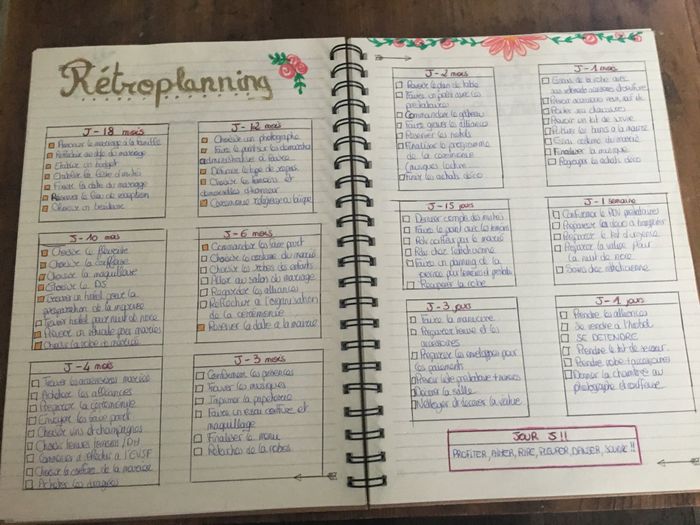 Rétroplanning
J-18 mois
Annoncer le mariage à la famille
Réfléchir au style du mariage
Etablir un budget
Etablir la liste d'invités
Fixer la date du mariage
Réserver le lieu de réception
Choisir un traiteur
J-12 mois
Choisir un photographe
Faire le point sur les démarches
administratives à faire
Définir le type de repas
Choisir les témoins et
demoiselles d'honneur
Cérémonie religieuse ou laïque
J-10 mois
Choisir le fleuriste
Choisir la coiffeuse
Choisir la maquilleuse
Choisir le DJ
Trouver un hôtel pour la
préparation de la mariée
Trouver hôtel pour nuit de noce
Choisir la robe de mariée
J-6 mois
Commander les faire part
Choisir le costume du marié
Choisir les robes des enfants
Aller au salon du mariage
Regarder les alliances
Réfléchir à l'organisation
de la cérémonie
Réserver la date à la mairie
J-4 mois
Trouver accessoires mariée
Acheter les alliances
Préparer la cérémonie
Envoyer les faire part
Choisir vins et champagnes
Choisir tenues témoins/DH
Choisir la coiffure de la mariée
Acheter les dragées
J-3 mois
Confirmer les présences
Trouver les musiques
Imprimer la papeterie
Faire un essai coiffure et
maquillage
Finaliser le menu
Retouches de la robe
J-2 mois
Prévoir le plan de table
Faire un point avec les
prestataires
Commander le gâteau
Faire graver les alliances
Réserver les hôtels
Finaliser le programme
de la cérémonie
(musiques, lecture
Finir les achats déco
J-1 mois
Essai de la robe avec
Porter ses chaussures
Prévoir un kit de survie
Publier les bans à la mairie
Essai costume du marié
Finaliser la musique
Regrouper les achats déco
J-15 jours
Dernier compte des invités
Faire le point avec les témoins
Rdv coiffeur pour le marié
Rdv chez l'esthéticienne
Faire un planning de la
journée pour témoins et prestats
Récupérer la robe
J-1 semaine
Confirmer le RDV prestataires
Préparer la déco à transférer
Préparer le kit d'urgence
Préparer la valise pour
la nuit de noce
Soins chez esthéticienne
J-3 jours
Faire la manucure
Préparer tenue et les
accessoires
Préparer les enveloppes pour
les paiements
Décorer la salle
J-1 jours
Prendre les alliances
Se rendre à l'hôtel
SE DETENDRE
Prendre le kit de secours
Prendre robe + accessoires
Donner la chambre au
photographe et coiffeuse
JOUR J !!
PROFITER, AIMER, RIRE, PLEURER, DANSER, SOURIRE !!